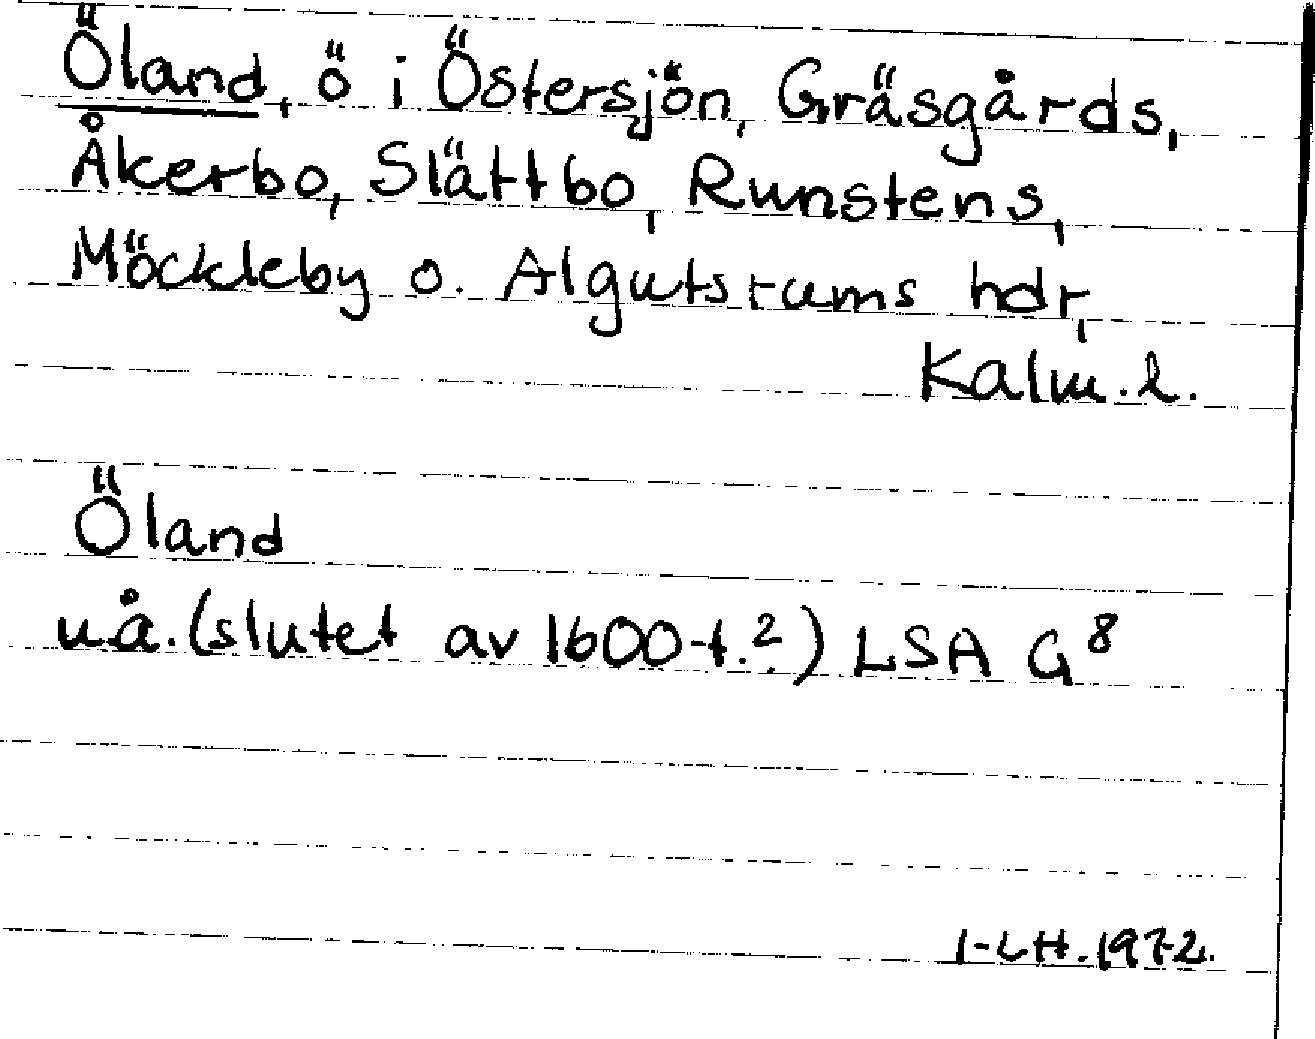 Öland, ö i Östersjön, Gräsgårds,
Åkerbo, Slättbo, Runstens,
Möckleby o. Algutsrums hdr,
Kalm. l.
Öland
u.å. (slutet av 1600-t.?) LSA G 8
I-LH. 1972.